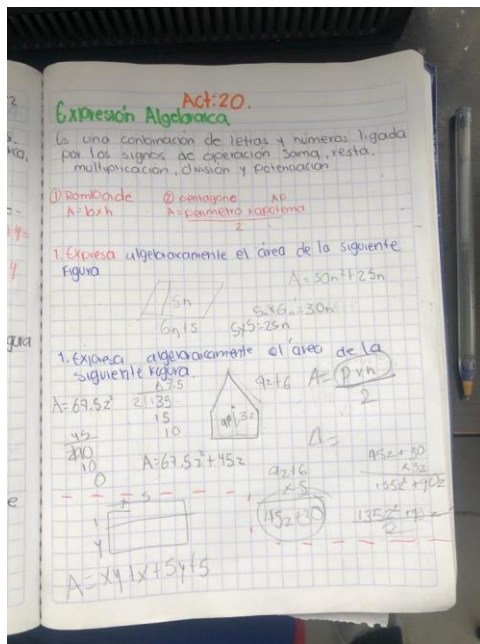 Act:20.
Expresión Algebraica
Es una conbinación de letras y números ligada
por los signos de operación Soma, resta,
multiplicación, división y potenciación
① Romboide
A=bxh
② pentagono AP
A=perimetro x apotema
2
1. Expresa algebraicamente el área de la siguiente
Figura
A=30n²+25n
5n
6n+5
5nx6n=30n
5x5=25n
1. Expresa algebraicamente el área de la
siguiente figura.
9z+6
A=pxn
2
A=67.5z²
67.5
2 135
15
10
ap 3z
45
10
0
A=67.5z²+45z
A=
9z+6
x5
45z+30
45z+30
x3z
135z²+90z
2
y
A=xy+x+5y+5